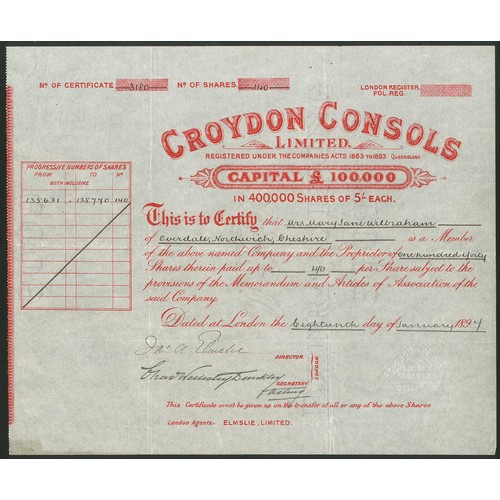 No OF CERTIFICATE 3180 No OF SHARES 140 LONDON REGISTER.
FOL. REG.
CROYDON CONSOLS
LIMITED.
REGISTERED UNDER THE COMPANIES ACTS 1863 TO 1893 QUEENSLAND
CAPITAL £ 100,000
IN 400,000 SHARES OF 5/- EACH.
PROGRESSIVE NUMBERS OF SHARES
FROM TO No
BOTH INCLUSIVE
135631 135770 140
This is to Certify that Mrs Mary Jane Wilbraham
of Overdale, Northwich, Cheshire is a Member
of the above named Company and the Proprietor of One hundred & forty
Shares therein paid up to 4/6 per Share subject to the
provisions of the Memorandum and Articles of Association of the
said Company.
Dated at London the Eighteenth day of January 1897
Jas A. Elmslie
DIRECTOR.
LONDON
SECRETARY
Acting
This Certificate must be given up on the transfer of all or any of the above Shares
London Agents- ELMSLIE, LIMITED.